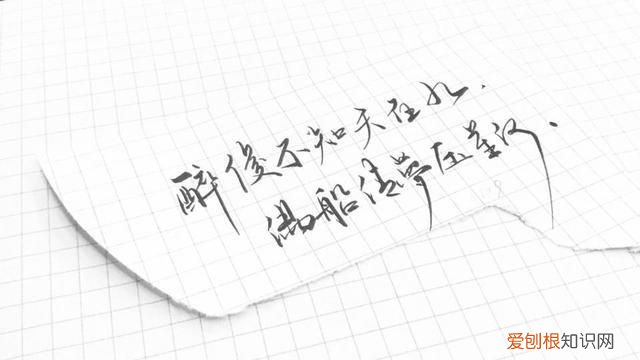 醉後不知天在水.
满船清夢压星河.
爱刨根知识网